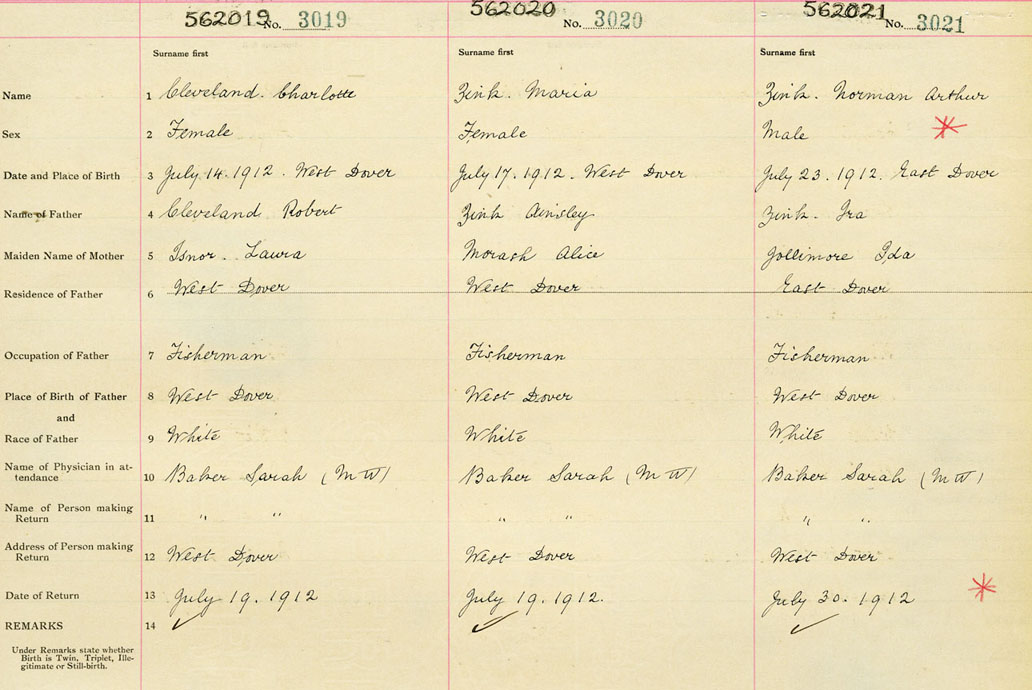 562019 No. 3019 562020 No. 3020 562021 No. 3021
Surname first Surname first Surname first
Name 1 Cleveland. Charlotte Zink. Maria Zink. Norman Arthur
Sex 2 Female Female Male
Date and Place of Birth 3 July 14. 1912. West Dover July 17. 1912. West Dover July 23. 1912. East Dover
Name of Father 4 Cleveland Robert Zink Ainsley Zink. Ira
Maiden Name of Mother 5 Isnor. Laura Morash Alice Jollimore Ida
Residence of Father 6 West Dover West Dover East Dover
Occupation of Father 7 Fisherman Fisherman Fisherman
Place of Birth of Father 8 West Dover West Dover West Dover
and
Race of Father 9 White White White
Name of Physician in at-
tendance 10 Baker Sarah (M W) Baker Sarah (M W) Baker Sarah (M W)
Name of Person making
Return 11 " " " " " "
Address of Person making
Return 12 West Dover West Dover West Dover
Date of Return 13 July 19. 1912 July 19. 1912. July 30. 1912
REMARKS 14
Under Remarks state whether
Birth is Twin, Triplet, Ille-
gitimate or Still-birth.